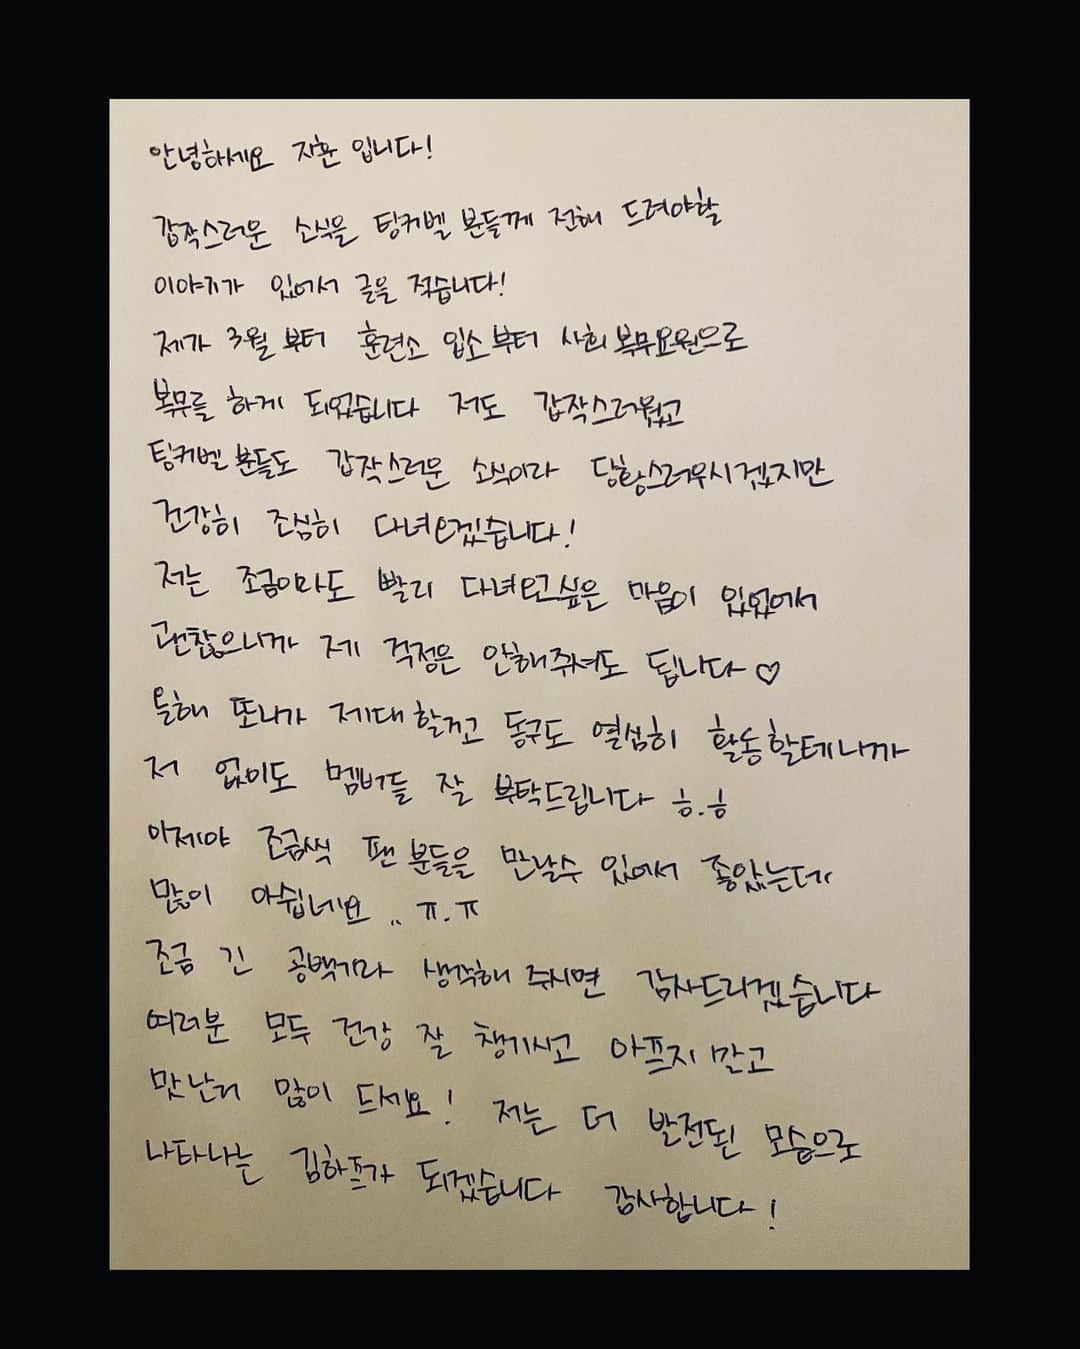 안녕하세요 지환 입니다!
갑작스러운 소식을 팅커벨 분들께 전해 드려야할
이야기가 있어서 글을 적습니다!
제가 3월 부터 훈련소 입소부터 사회복무요원으로
복무를 하게 되었습니다 저도 갑작스러웠고
팅커벨 분들도 갑작스러운 소식이라 당황스러우시겠지만
건강히 조심히 다녀오겠습니다!
저는 조금이라도 빨리 다녀오고싶은 마음이 있었어서
괜찮으니까 제 걱정은 안해주셔도 됩니다♡
올해 또나가 제대할꺼고 동구도 열심히 활동할테니까
저 없이도 멤버들 잘 부탁드립니다 ㅎ.ㅎ
이제야 조금씩 팬분들을 만날수 있어서 좋았는데
많이 아쉽네요 .. ㅠ.ㅠ
조금 긴 공백기라 생각해 주시면 감사드리겠습니다
여러분 모두 건강 잘 챙기시고 아프지 말고
맛난거 많이 드세요! 저는 더 발전된 모습으로
나타나는 김하프가 되겠습니다 감사합니다!